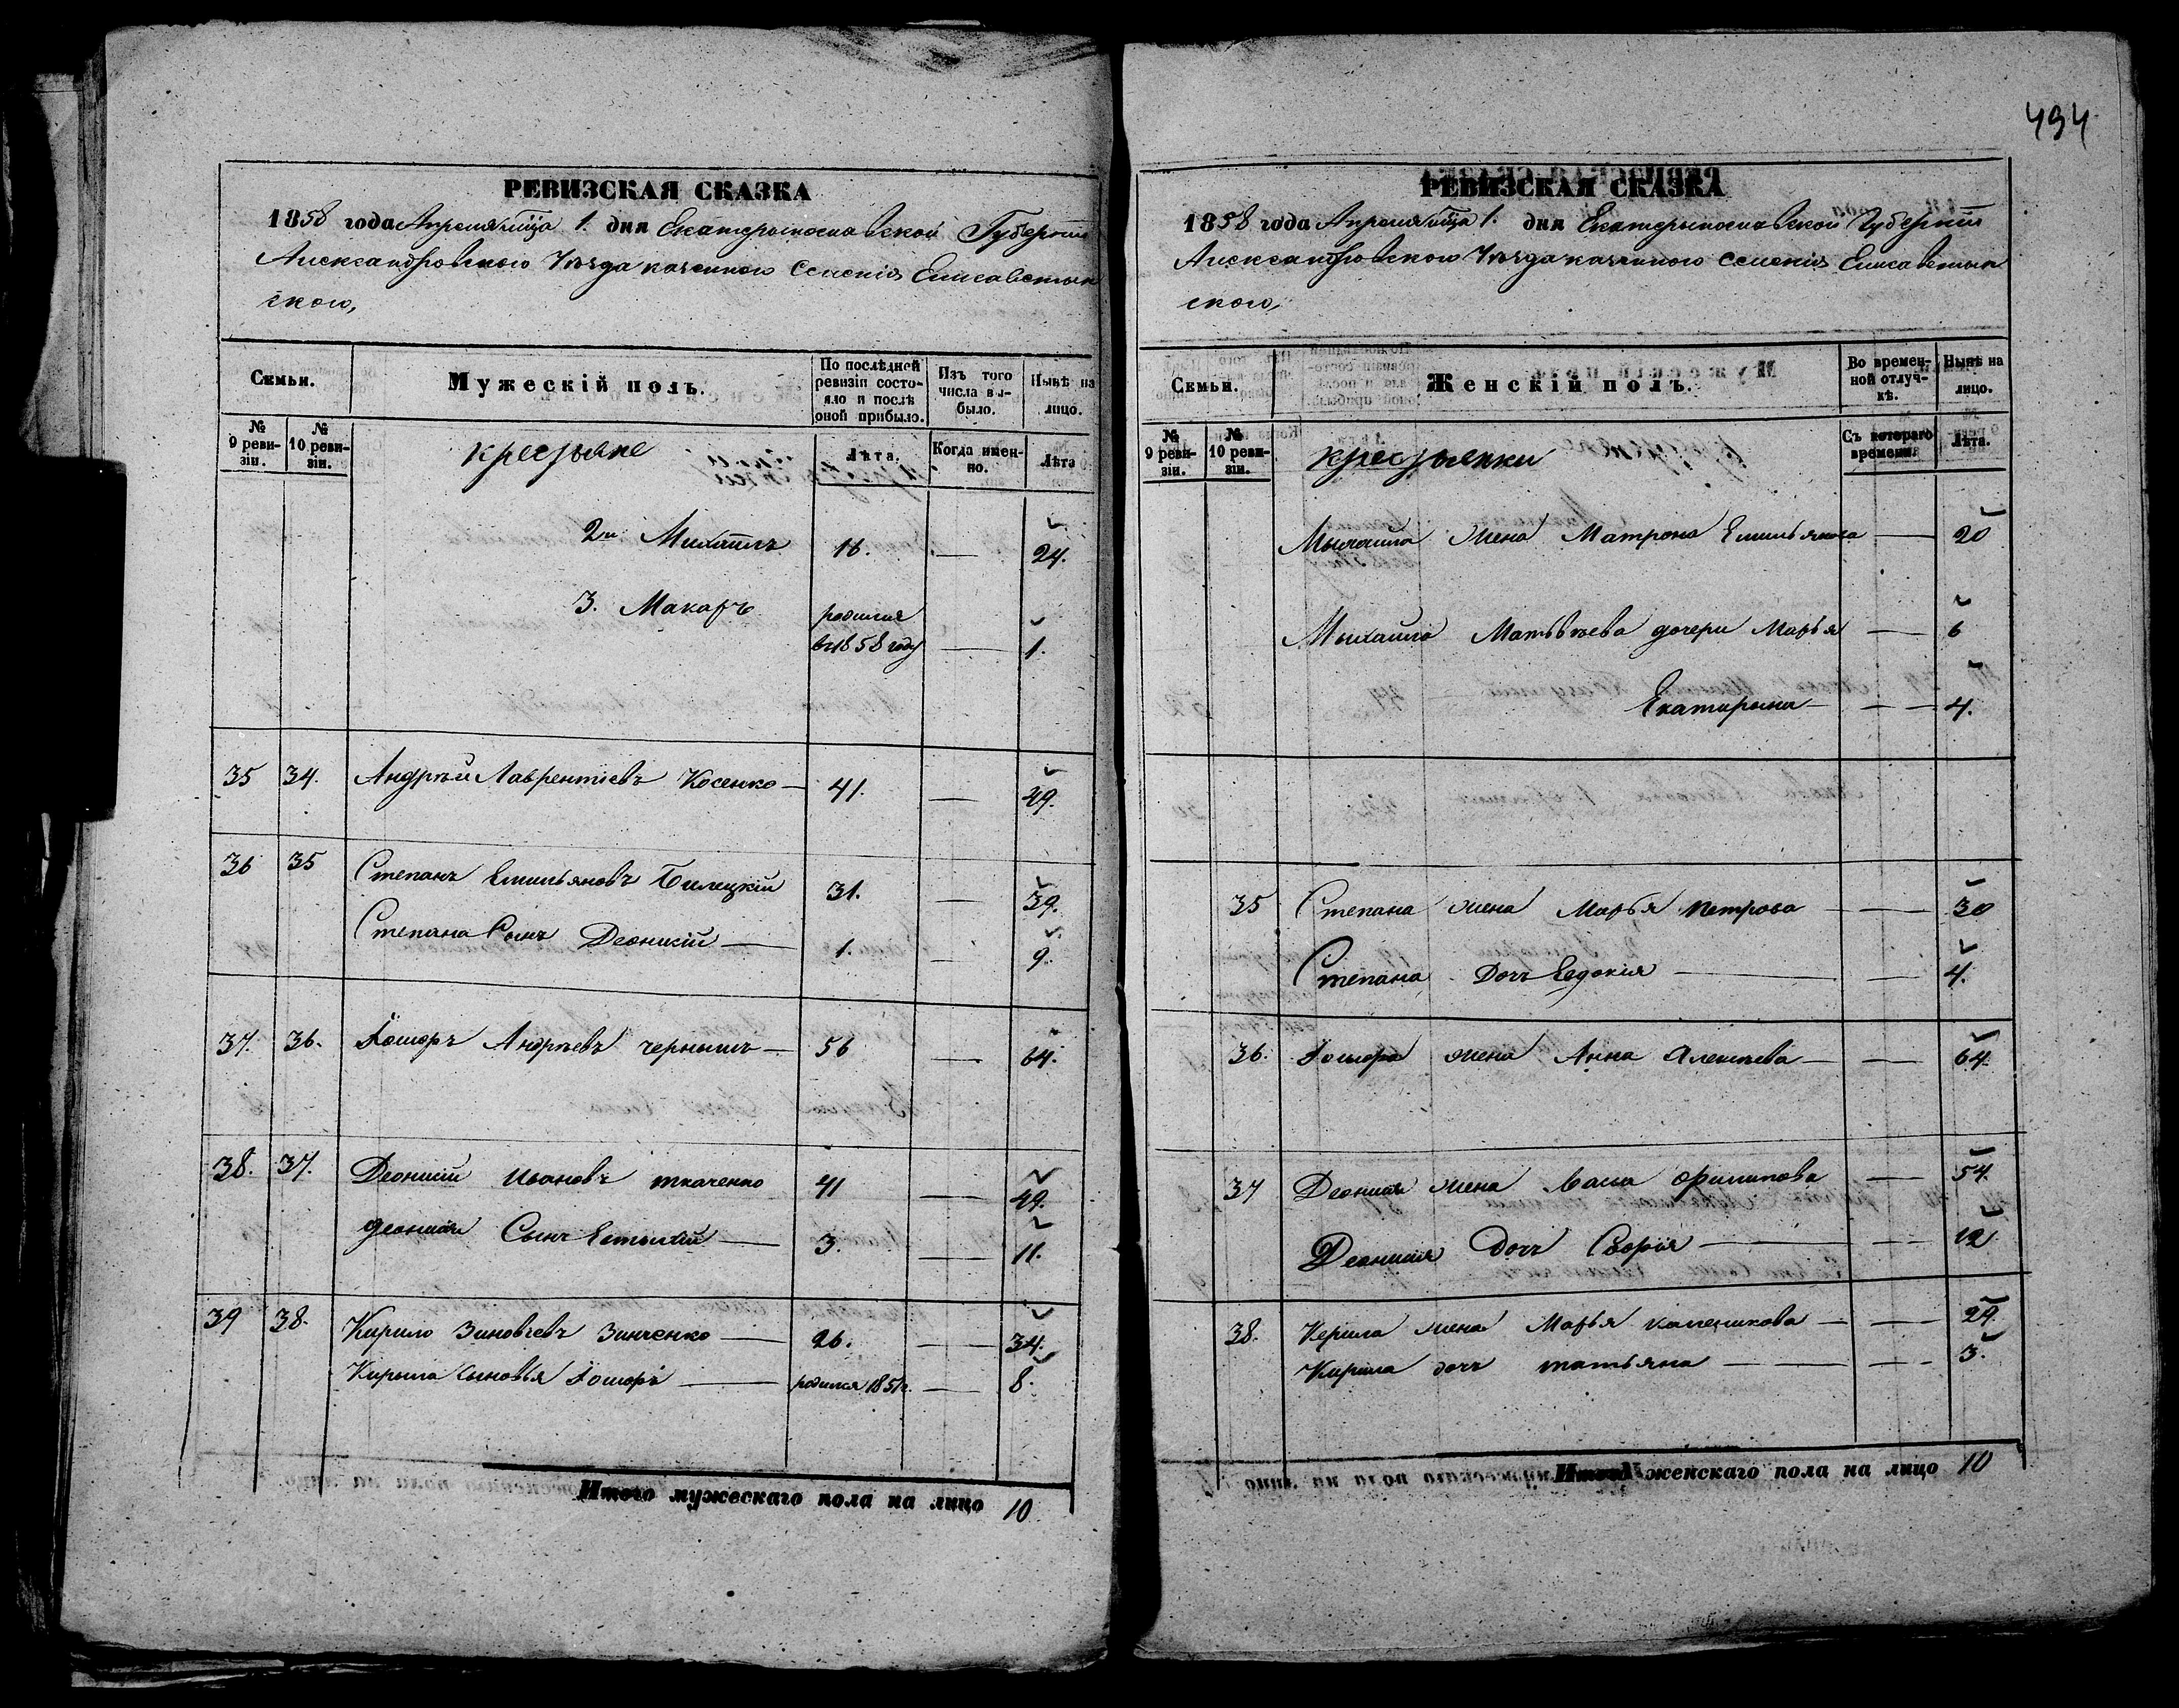 494
РЕВИЗСКАЯ СКАЗКА
1858 года Апреля мца 1. дня Екатерынославской Губерніи
Александровского Уезда казенного Селенія Елисаветын
ского,
Семьи.
Мужескій полъ.
По послѣдней ревизіи состояло и послѣ оной прибыло.
Изъ того числа выбыло.
Нынѣ на лицо.
№ 9 ревизіи.
№ 10 ревизіи.
крестьяне
Лѣта.
Когда именно.
Лѣта
2й Михайлъ 16. — 24.
3. Макаръ родился въ 1858 году — 1.
35 34. Андрѣй Лаврентіевъ Косенко — 41. — 49.
36 35 Степанъ Емильяновъ Билецкій 31. — 39.
Степана Сынъ Деонисій — 1. — 9.
37. 36. Андрѣевъ чернышъ — 56 — 64.
38. 37. Деонисій Ивановъ ткаченко 41 — 49.
деонисія Сынъ — 3. — 11.
39 38. Кирило Зиновѣевъ Зинченко — 26. — 34.
Кирыла Сыновья — родился 1851г. — 8.
Итого мужескаго пола на лицо 10
РЕВИЗСКАЯ СКАЗКА
1858 года Апреля мца 1. дня Екатерынославской Губерніи
Александровского Уезда казенного Селенія Елисаветын
ского,
Семьи.
Женскій полъ.
Во временной отлучкѣ.
Нынѣ на лицо.
№ 9 ревизіи.
№ 10 ревизіи.
крестьянки
Съ котораго времени.
Лѣта.
Мыхайла жена Матрона Емильянова — 20
Мыхайла Матвѣева дочери Марья — 6
Екатирына — — 4.
35 Степана жена Марья Петрова — 30
Степана Дочь Евдокия — 4.
36. жена Анна Алексѣева — — 64.
37 Деонисія жена Филипова — 54.
Деонисія дочь Софія — — 12
38. Керила жена Марья калепикова — — 29.
Кирила дочь татьяна — — 3.
Итого женскаго пола на лицо 10